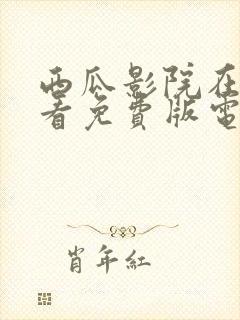 西瓜影院在
看免費版電
肖年紅